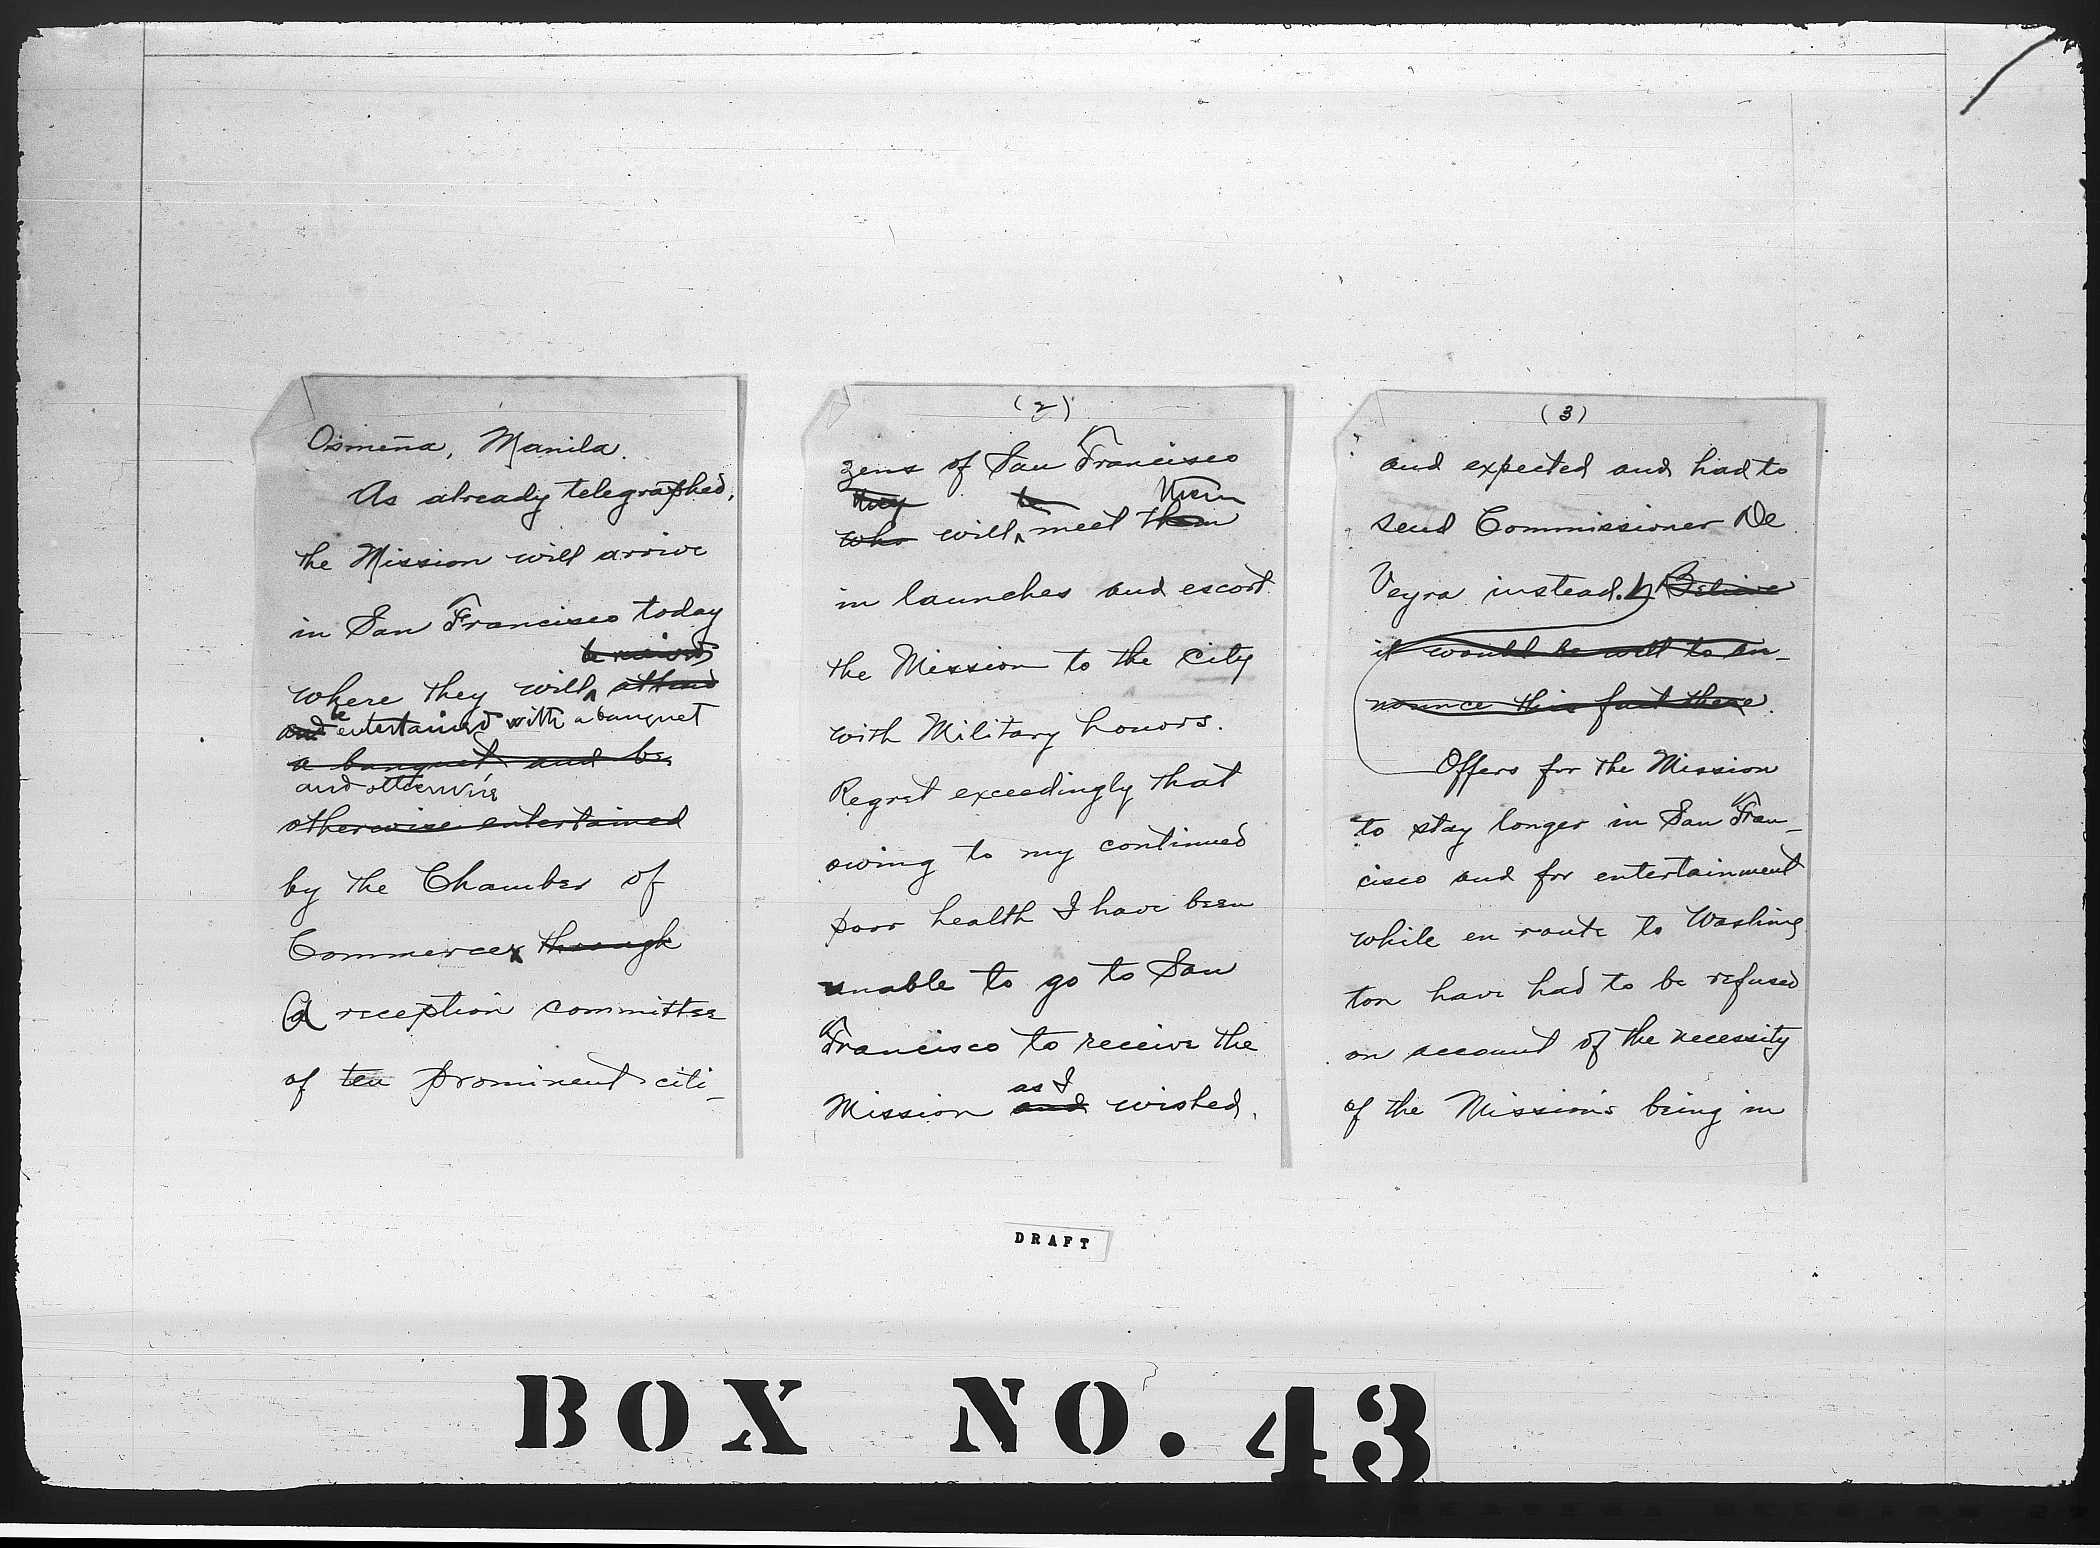 Osmeña, Manila.
As already telegraphed,
the Mission will arrive
in San Francisco today
be received
where they will attend
and be entertained with a banquet
a banquet and be
and otherwise
otherwise entertained
by the Chamber of
Commerce, through
A reception committee
of ten prominent citi-
(2)
zens of San Francisco
they be them
who will meet them
in launches and escort
the Mission to the city
with Military honors.
Regret exceedingly that
owing to my continued
poor health I have been
unable to go to San
Francisco to receive the
as I
Mission and wished,
(3)
and expected and had to
send Commissioner De
Veyra instead. Believe
it would be well to an-
nounce this fact there.
Offers for the Mission
to stay longer in San Fran-
cisco and for entertainment
while en route to Washing
ton have had to be refused
on account of the necessity
of the Mission's being in
DRAFT
BOX NO. 43